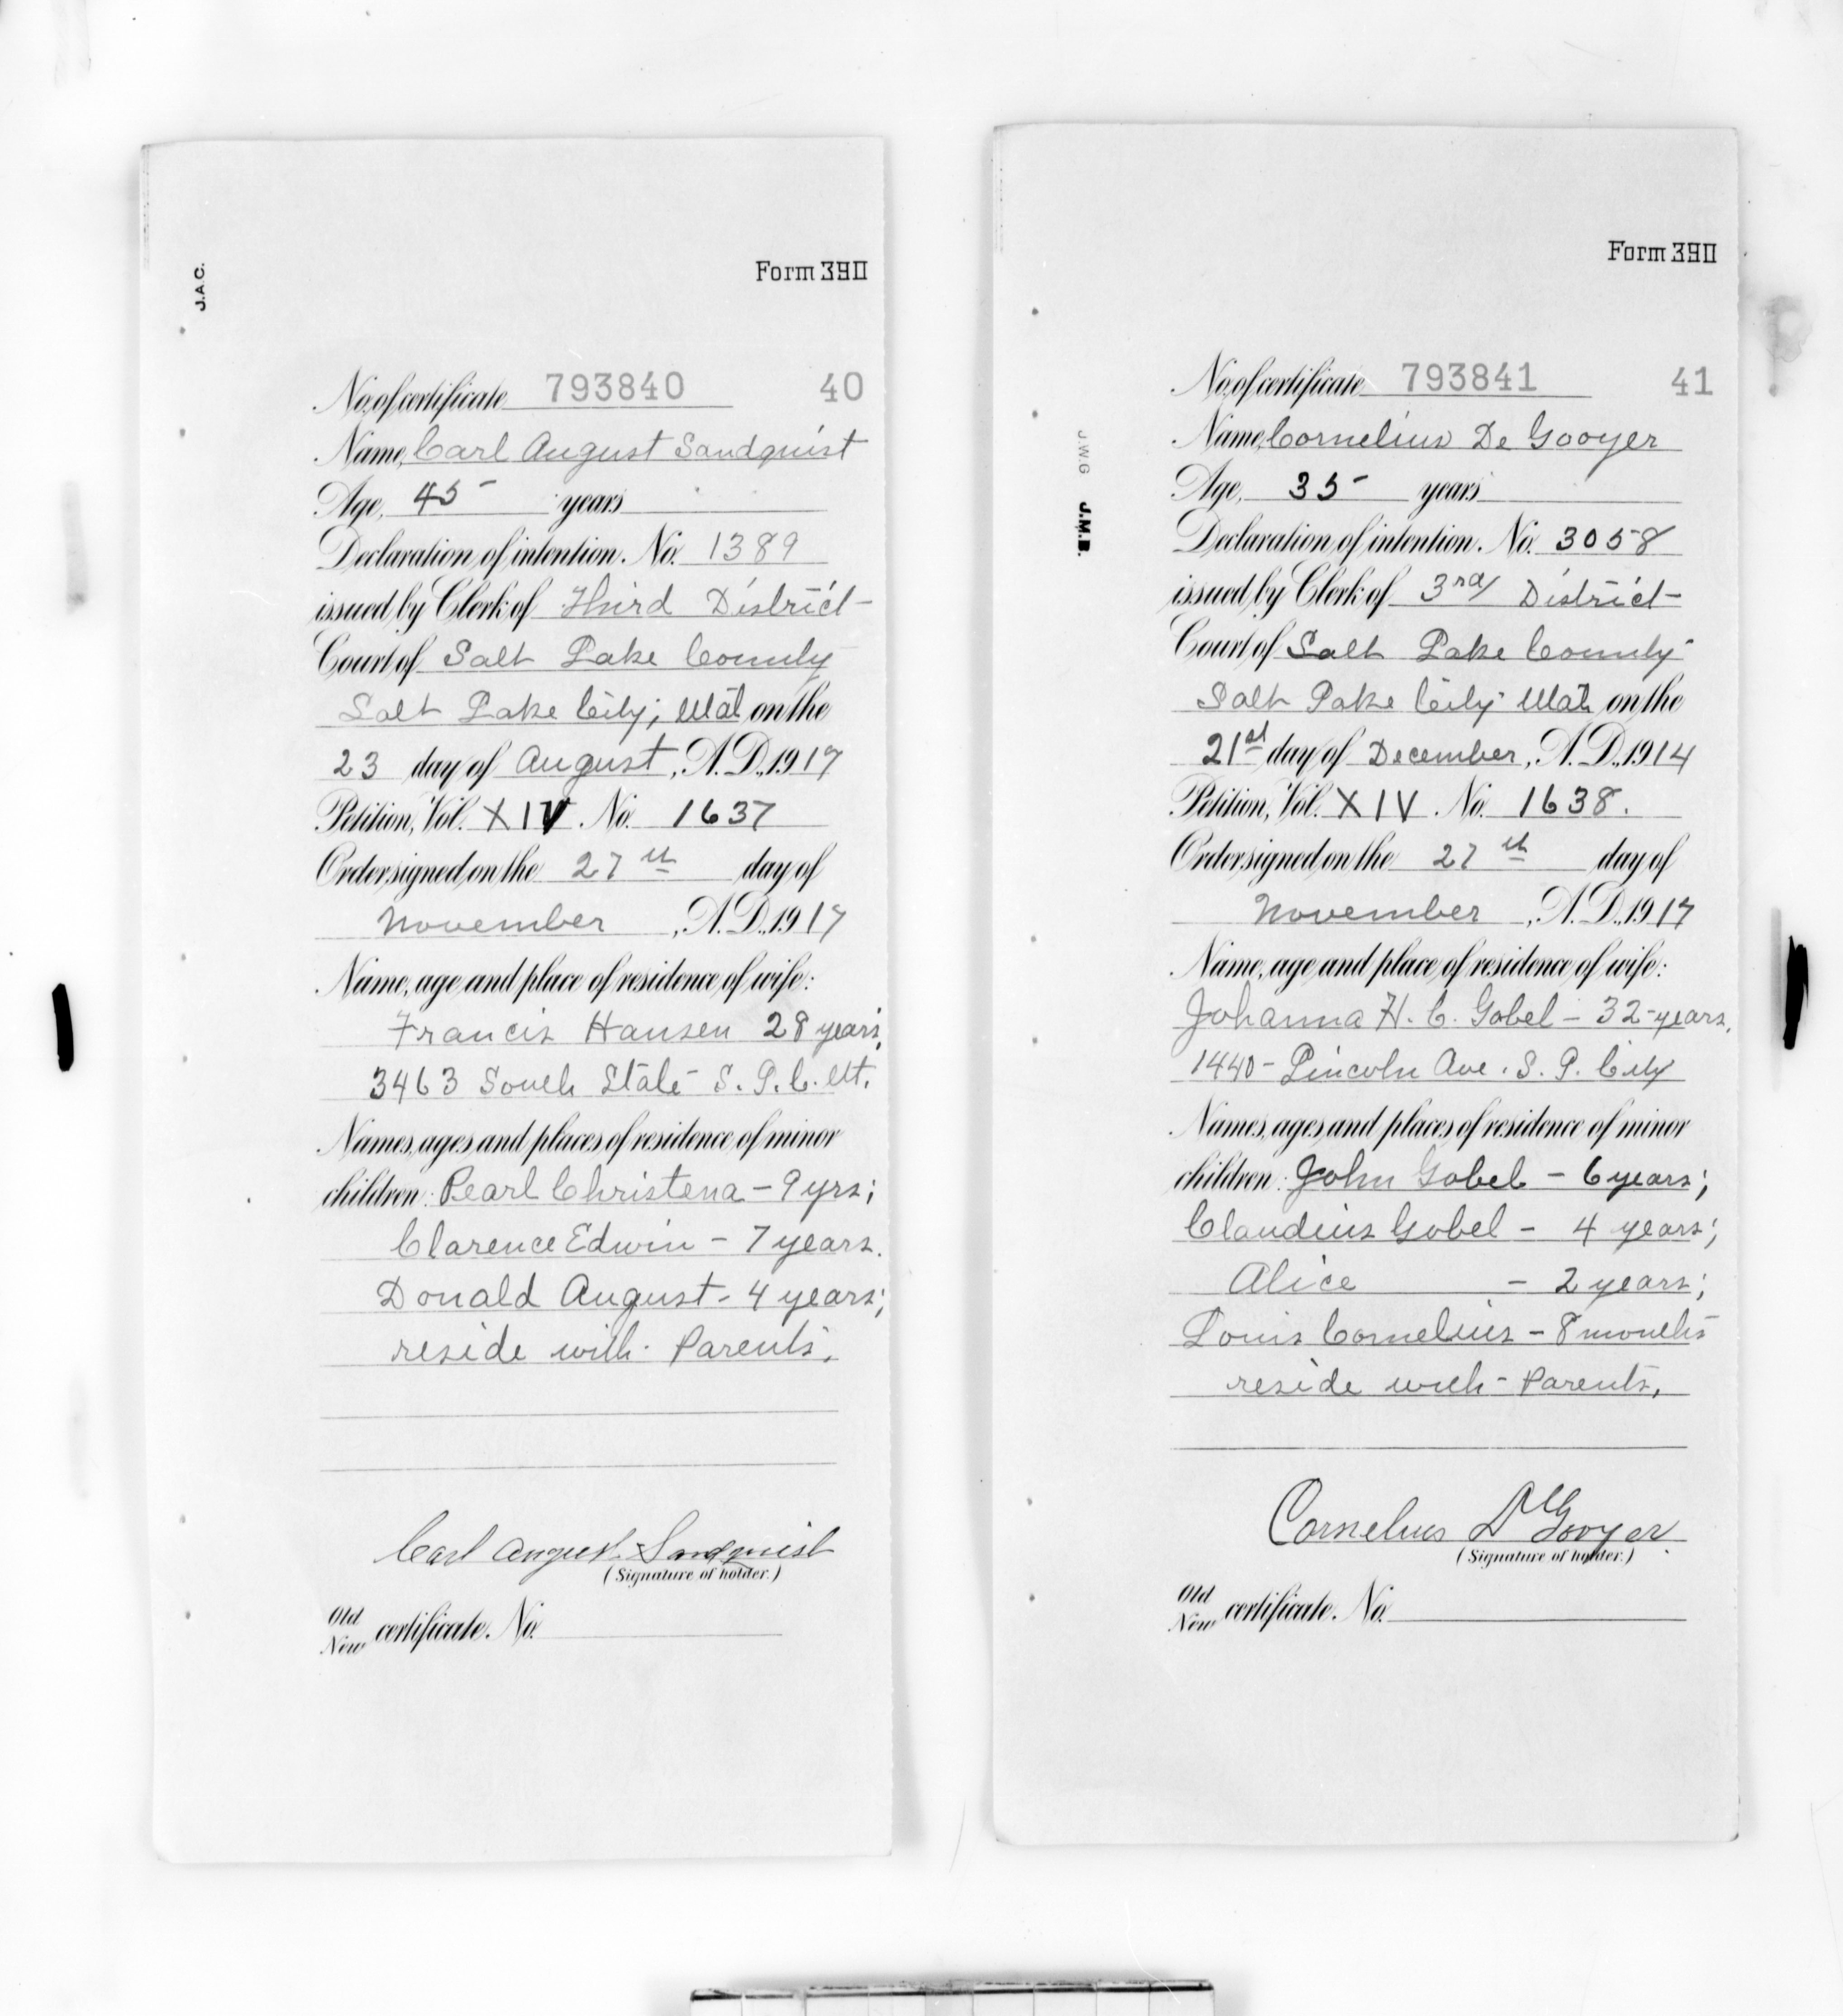 J.A.C.
Form 390
No. of certificate 793840 40
Name, Carl August Sandquist
Age, 45 years
Declaration of intention. No. 1389
issued by Clerk of Third District
Court of Salt Lake County
Salt Lake City; Utah on the
23 day of August, A. D., 1917
Petition, Vol. XIV. No. 1637
Order signed on the 27th day of
November, A. D., 1917
Name, age and place of residence of wife:
Francis Hansen 28 years,
3463 South State S. L. C. Ut.
Names, ages and places of residence of minor
children: Pearl Christena - 9 yrs;
Clarence Edwin - 7 years.
Donald August - 4 years;
reside with Parents.
Carl August Sandquist
(Signature of holder.)
Old
New certificate. No.
J.W.G J.M.B.
Form 390
No. of certificate 793841 41
Name, Cornelius De Gooyer
Age, 35 years
Declaration of intention. No. 3058
issued by Clerk of 3rd District
Court of Salt Lake County
Salt Lake City Utah on the
21st day of December, A. D., 1914
Petition, Vol. XIV. No. 1638.
Order signed on the 27th day of
November, A. D., 1917
Name, age and place of residence of wife:
Johanna H. C. Gobel - 32 years,
1440 - Lincoln Ave. S. L. City
Names, ages and places of residence of minor
children: John Gobel - 6 years;
Claudius Gobel - 4 years;
Alice - 2 years;
Louis Cornelius - 8 months
reside with Parents.
Cornelius De Gooyer
(Signature of holder.)
Old
New certificate. No.